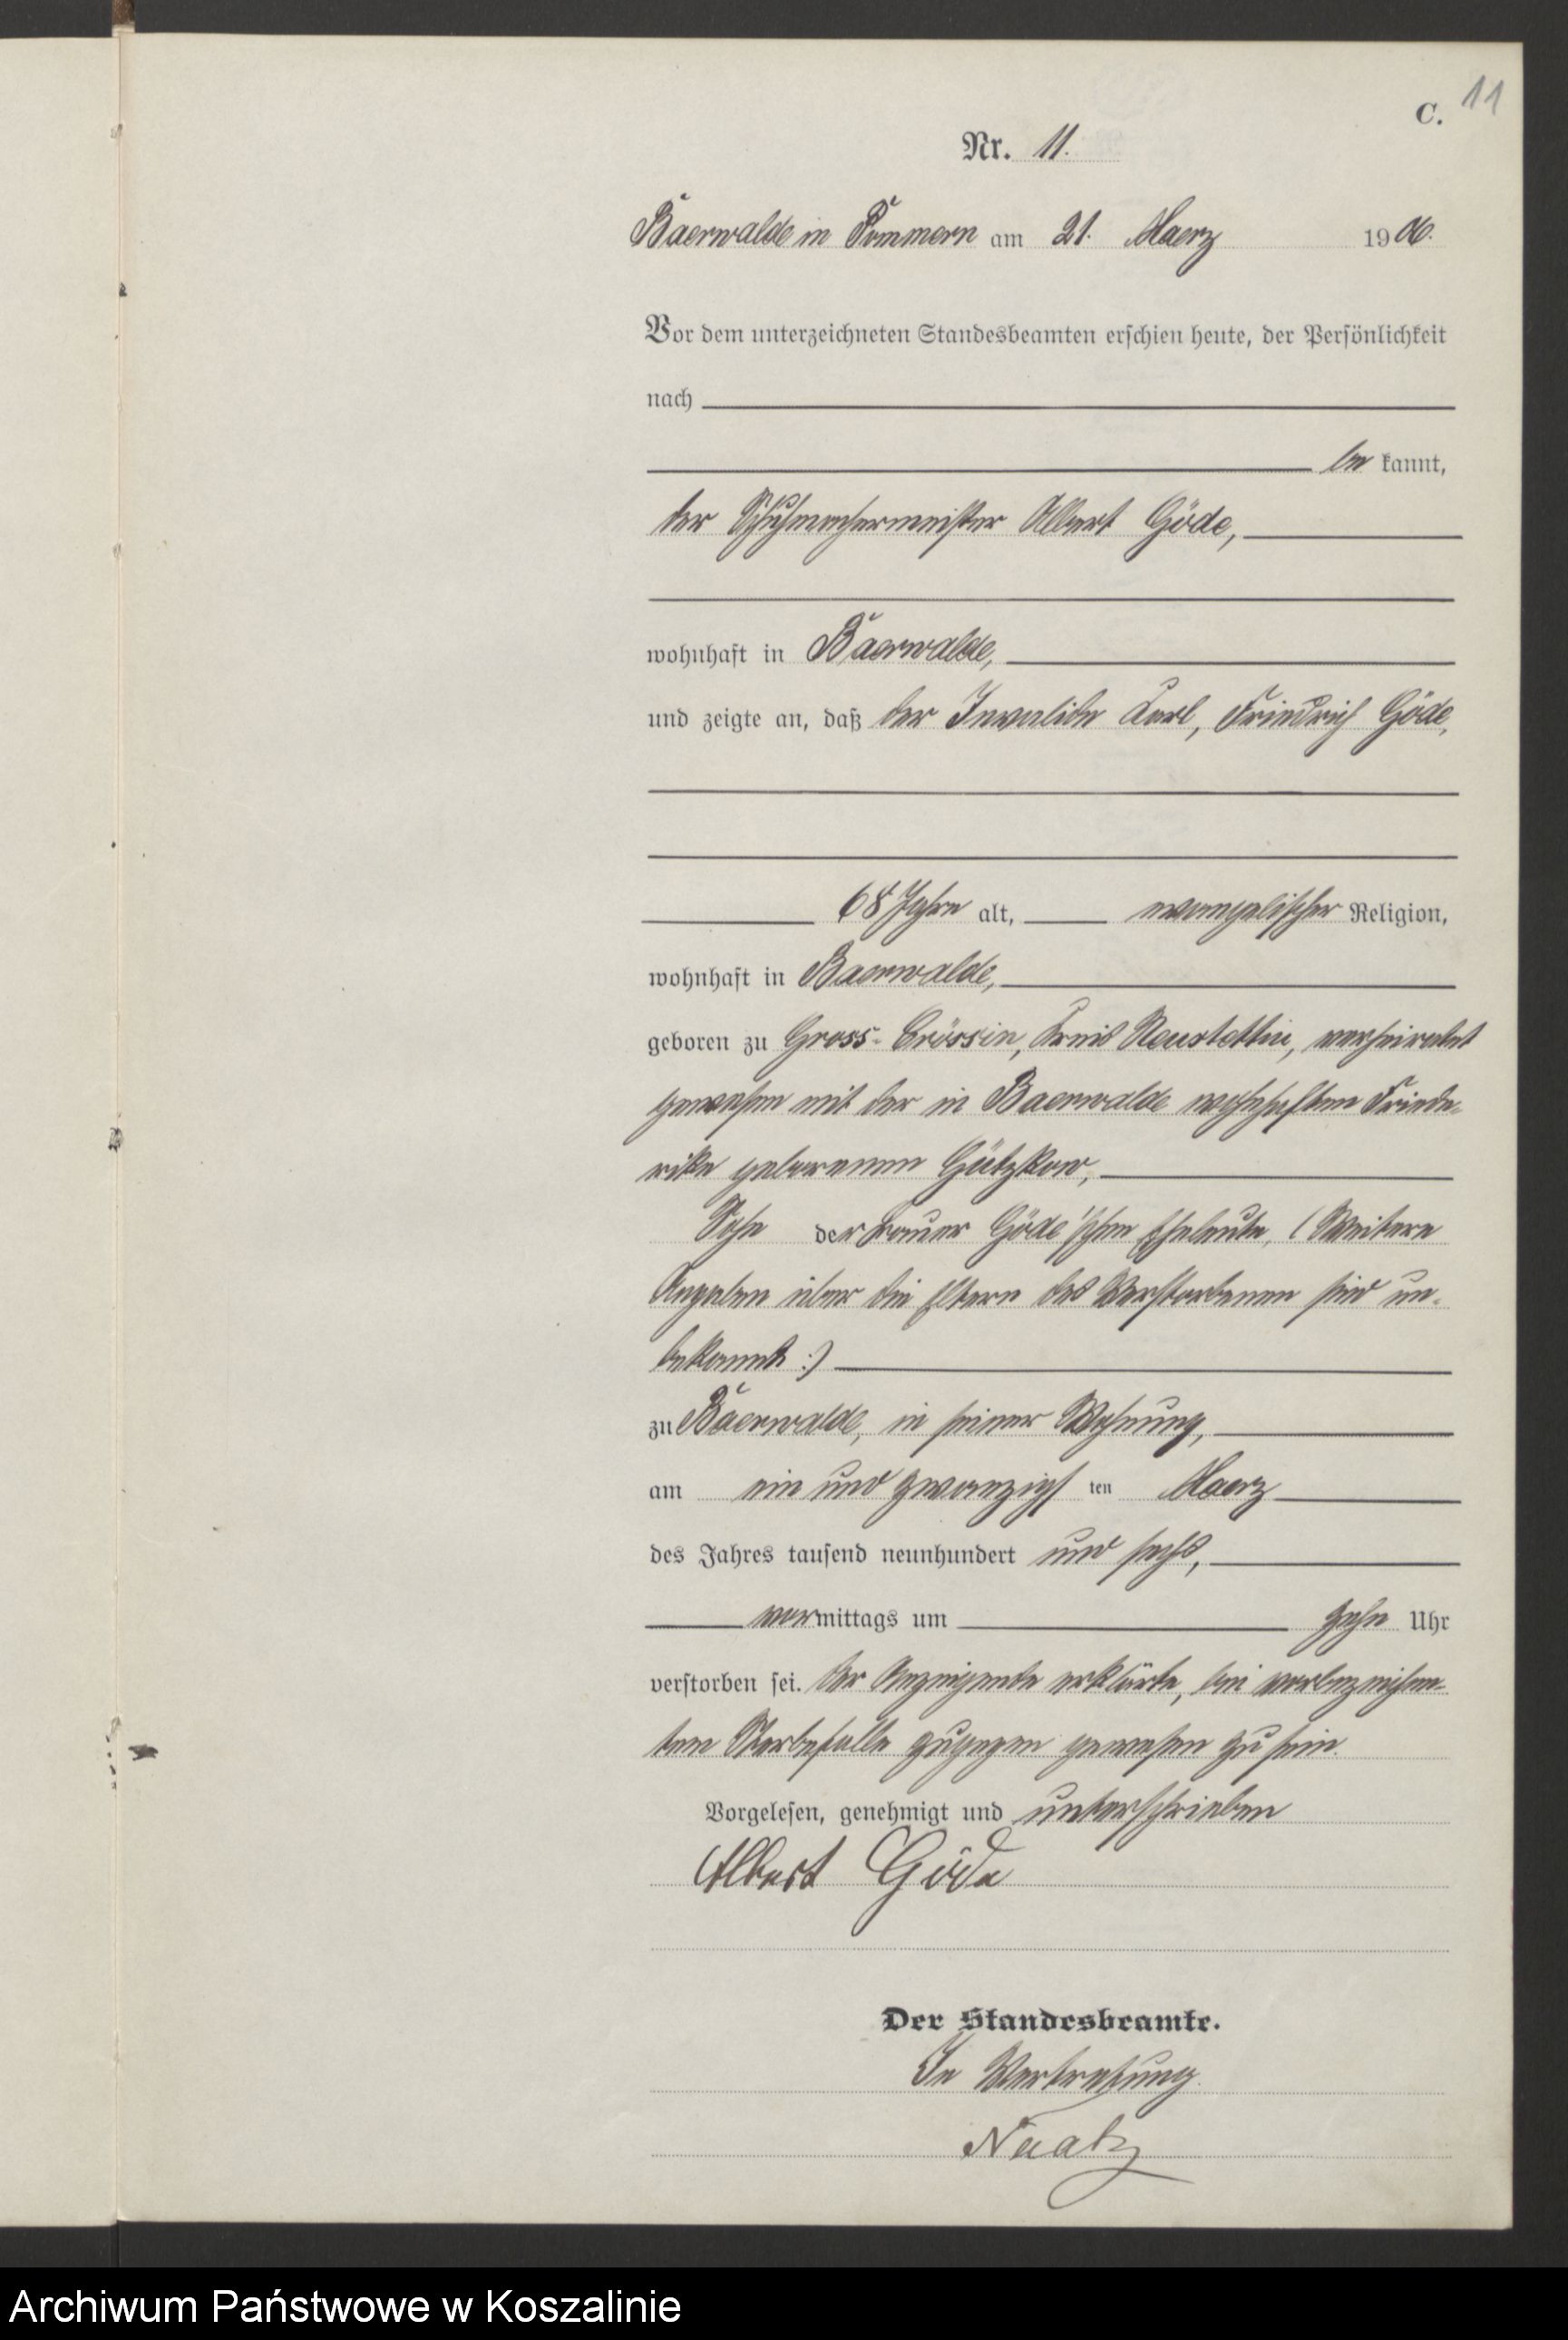 11
C.
Nr. 11.
Baerwalde in Pommern am 21. Maerz 1906.
Vor dem unterzeichneten Standesbeamten erschien heute, der Persönlichkeit
nach
be kannt,
der Schuhmachermeister Albert Göde,
wohnhaft in Baerwalde,
und zeigte an, daß der Invalide Karl, Friedrich Göde,
68 Jahre alt, evangelischer Religion,
wohnhaft in Baerwalde,
geboren zu Gross-Crössin, Kreis Neustettin, verheiratet
gewesen mit der in Baerwalde wohnhaften Friede-
rike geborenen Gützkow,
Sohn der Bauer Göde'schen Eheleute, (Weitere
Angaben über die Eltern des Verstorbenen sind un-
bekannt :)
zu Baerwalde, in seiner Wohnung,
am ein und zwanzigsten Maerz
des Jahres tausend neunhundert und sechs,
vormittags um zehn Uhr
verstorben sei. Der Anzeigende erklärte, bei vorbezeichne-
tem Sterbefalle zugegen gewesen zu sein.
Vorgelesen, genehmigt und unterschrieben
Albert Göde
Der Standesbeamte.
In Vertretung.
Archiwum Państwowe w Koszalinie